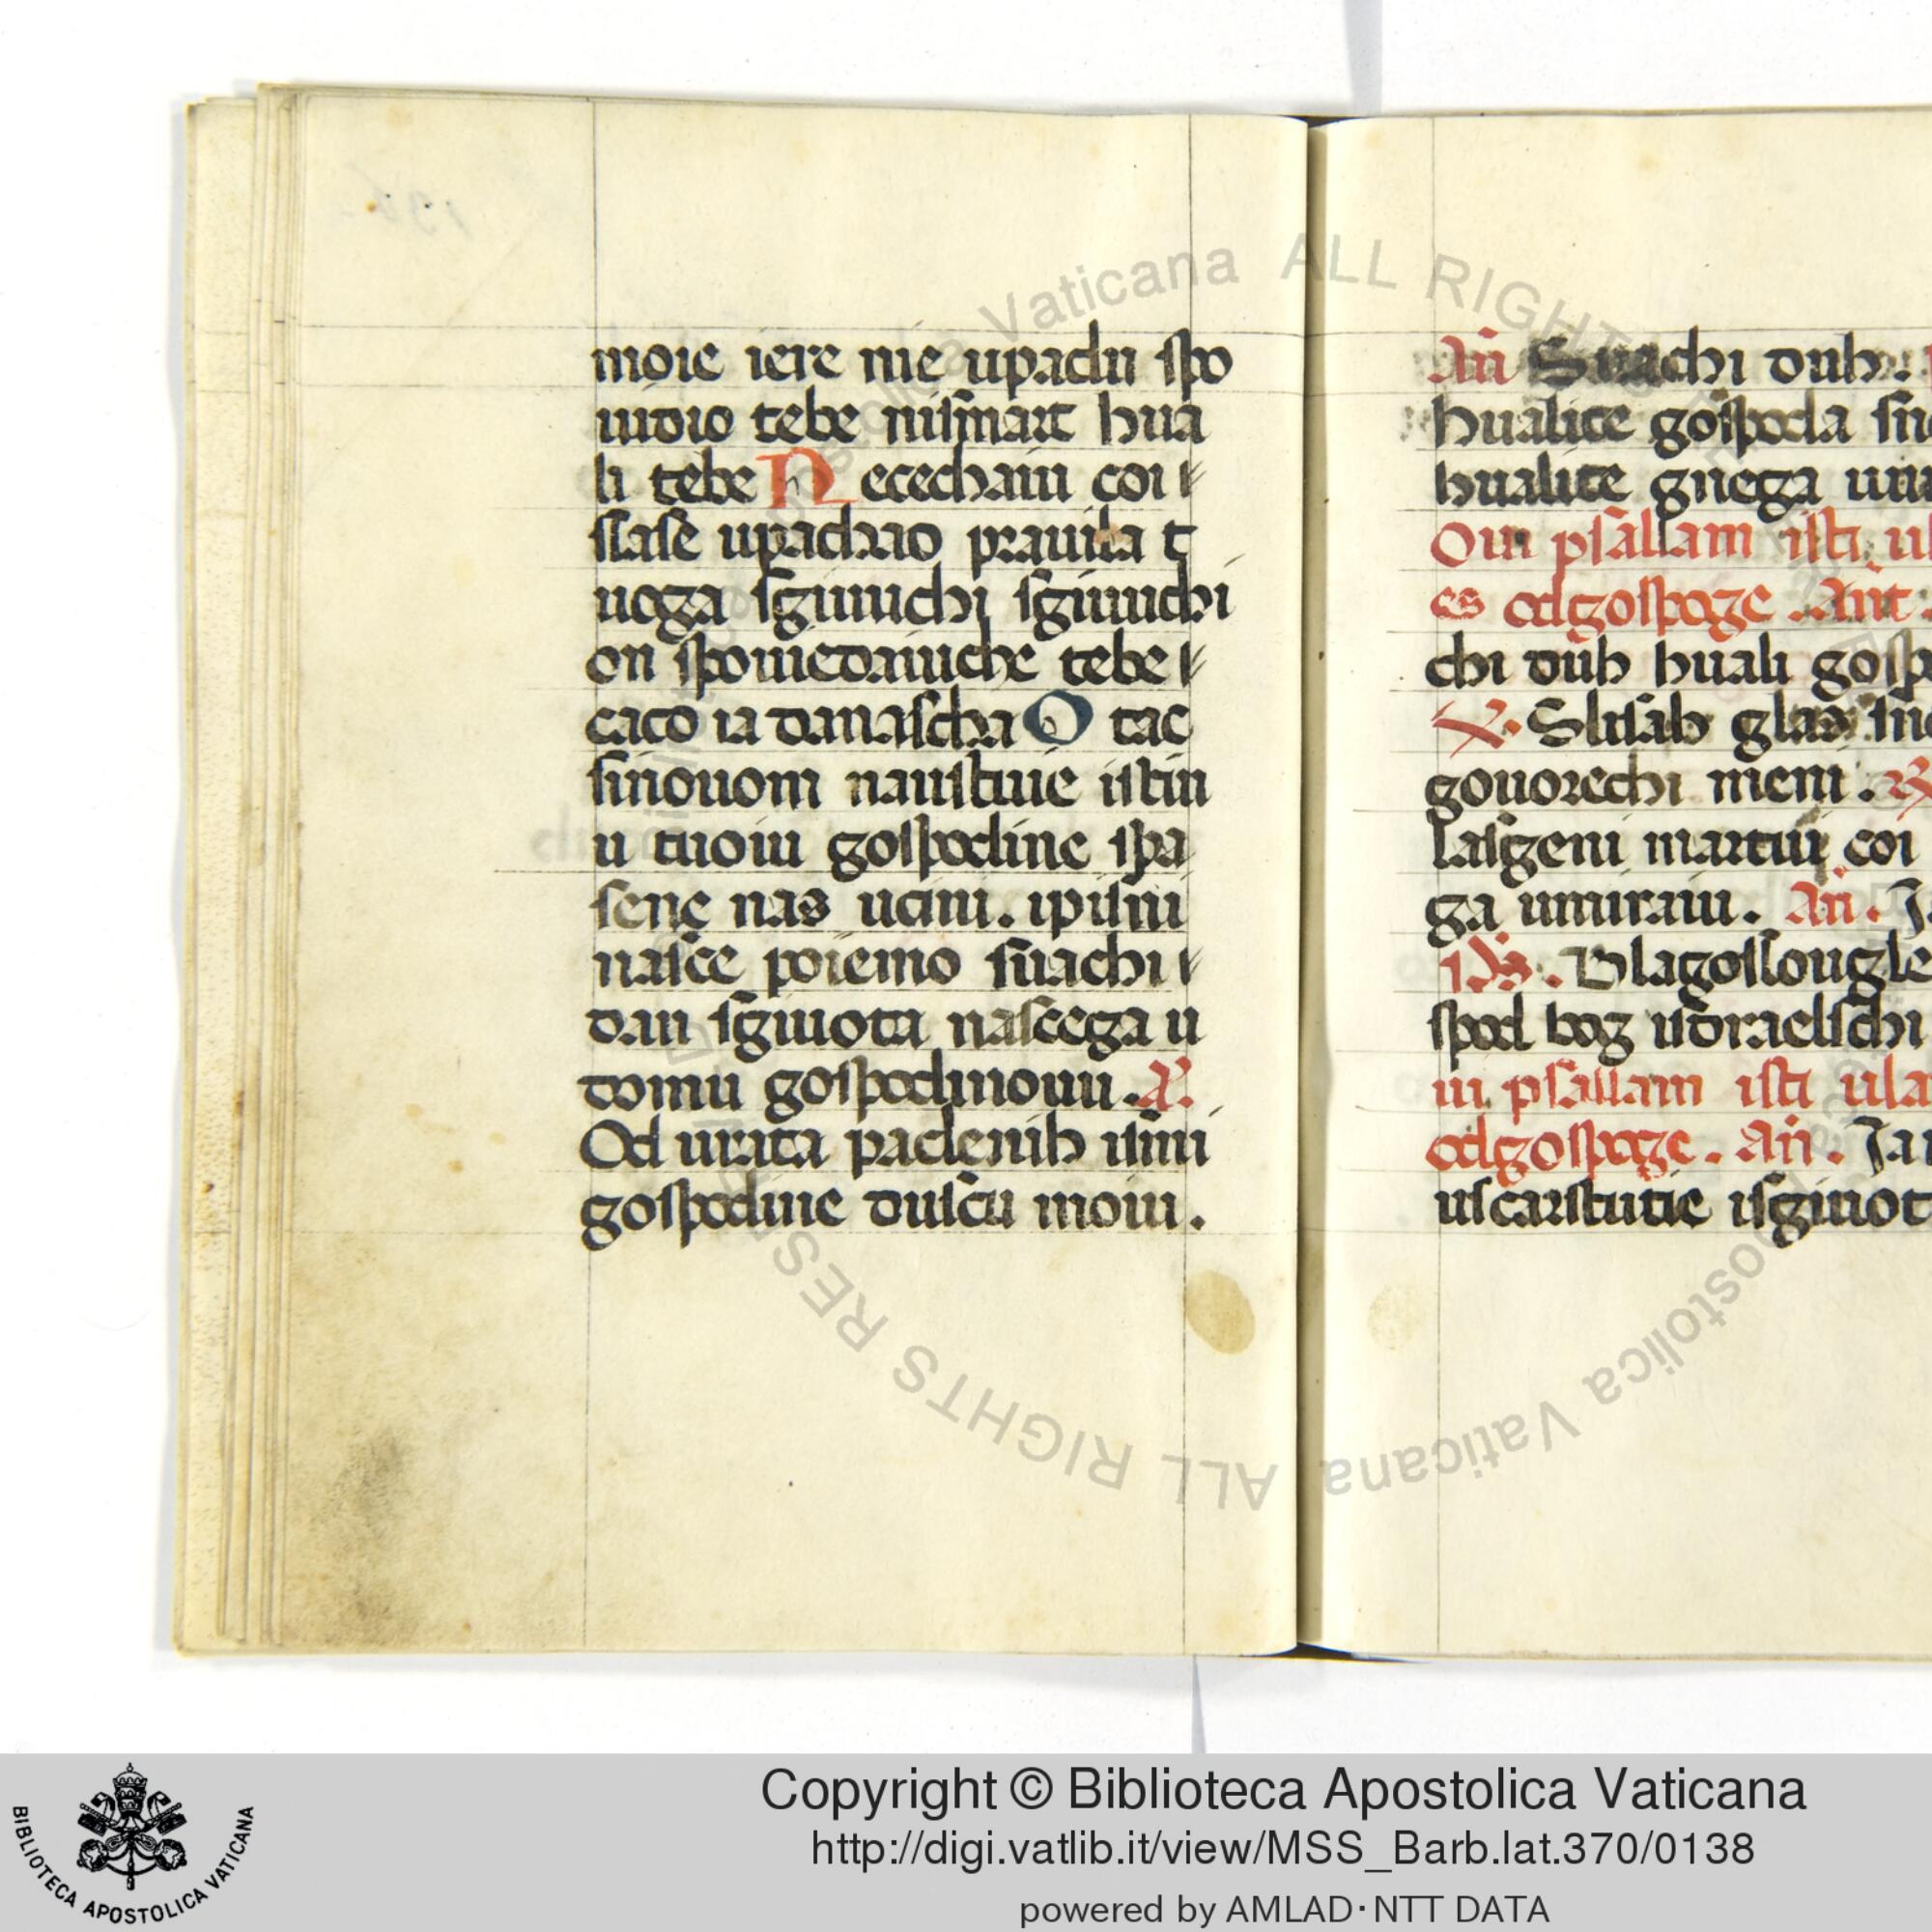 moie iere nie upachi spo
uidio tebe nismart hua
li tebe Necechaiu coi
slase upachao prauila t
uoga sgiuuchi sgiuuchi
on spouiedaiuche tebe
caco ia danascha Otac
sinouom nauistuie istin
u tuoiu gospodine spa
sene nas ucini. ipisni
nasce poiemo suachi
dan sgiuota nascega u
domu gospodinouu. A.
Od urata paclenih isimi
gospodine duscu moiu.
An Suachi duh.
hualite gospoda
hualite gnega
Oui psallam isti
es odgospoge. Ant.
chi duh huali
V. Slisah glas
gouorechi meni. R
lasgeni martui coi
ga umiraiu. An.
ps. Blagoslougle
spod bog isdraelschi
ui psallam isti
odgospoge. An.
uscarstutie isgiuot
Vaticana ALL RIGHTS
ALL RIGHTS
Apostolica Vaticana
BIBLIOTECA APOSTOLICA VATICANA
Copyright © Biblioteca Apostolica Vaticana
http://digi.vatlib.it/view/MSS_Barb.lat.370/0138
powered by AMLAD·NTT DATA